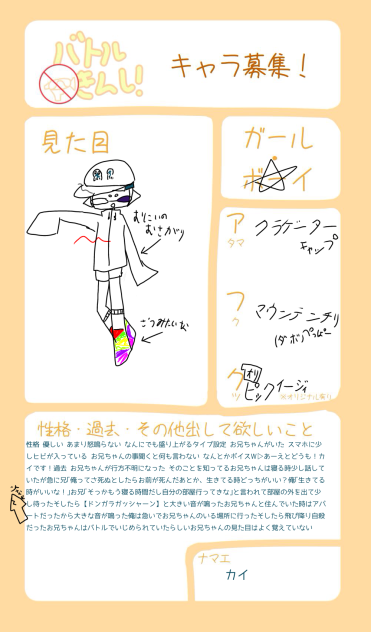 バトル
きんし!
キャラ募集!
見た目
ガール
ボーイ
開 見
おにいの
おさがり
アタマ
クラゲーター
キャップ
フク
マウンテンイチリ
クツ
オリ
ピックイージィ
※オリジナル有り
性格・過去・その他出して欲しいこと
性格 優しい あまり怒鳴らない なんにでも盛り上がるタイプ設定 お兄ちゃんがいた スマホに少
しヒビが入っている お兄ちゃんの事聞くと何も言わない なんとかボイスW▷あーえとどうも!カ
イです!過去 お兄ちゃんが行方不明になった そのことを知ってるお兄ちゃんは寝る時少し話して
いたが急に兄「俺ってさ死ぬとしたらお前が死んだあとか、生きてる時どっちがいい?俺「生きてる
時がいいな!」お兄「そっかもう寝る時間だし自分の部屋行ってきな」と言われて部屋の外を出て少
し待ったそしたら【ドンガラガッシャーン】と大きい音が鳴ったお兄ちゃんと住んでいた時はアパ
ートだったから大きな音が鳴った俺は急いでお兄ちゃんのいる場所に行ったそしたら飛び降り自殺
だったお兄ちゃんはバトルでいじめられていたらしいお兄ちゃんの見た目はよく覚えていない
ナマエ
カイ